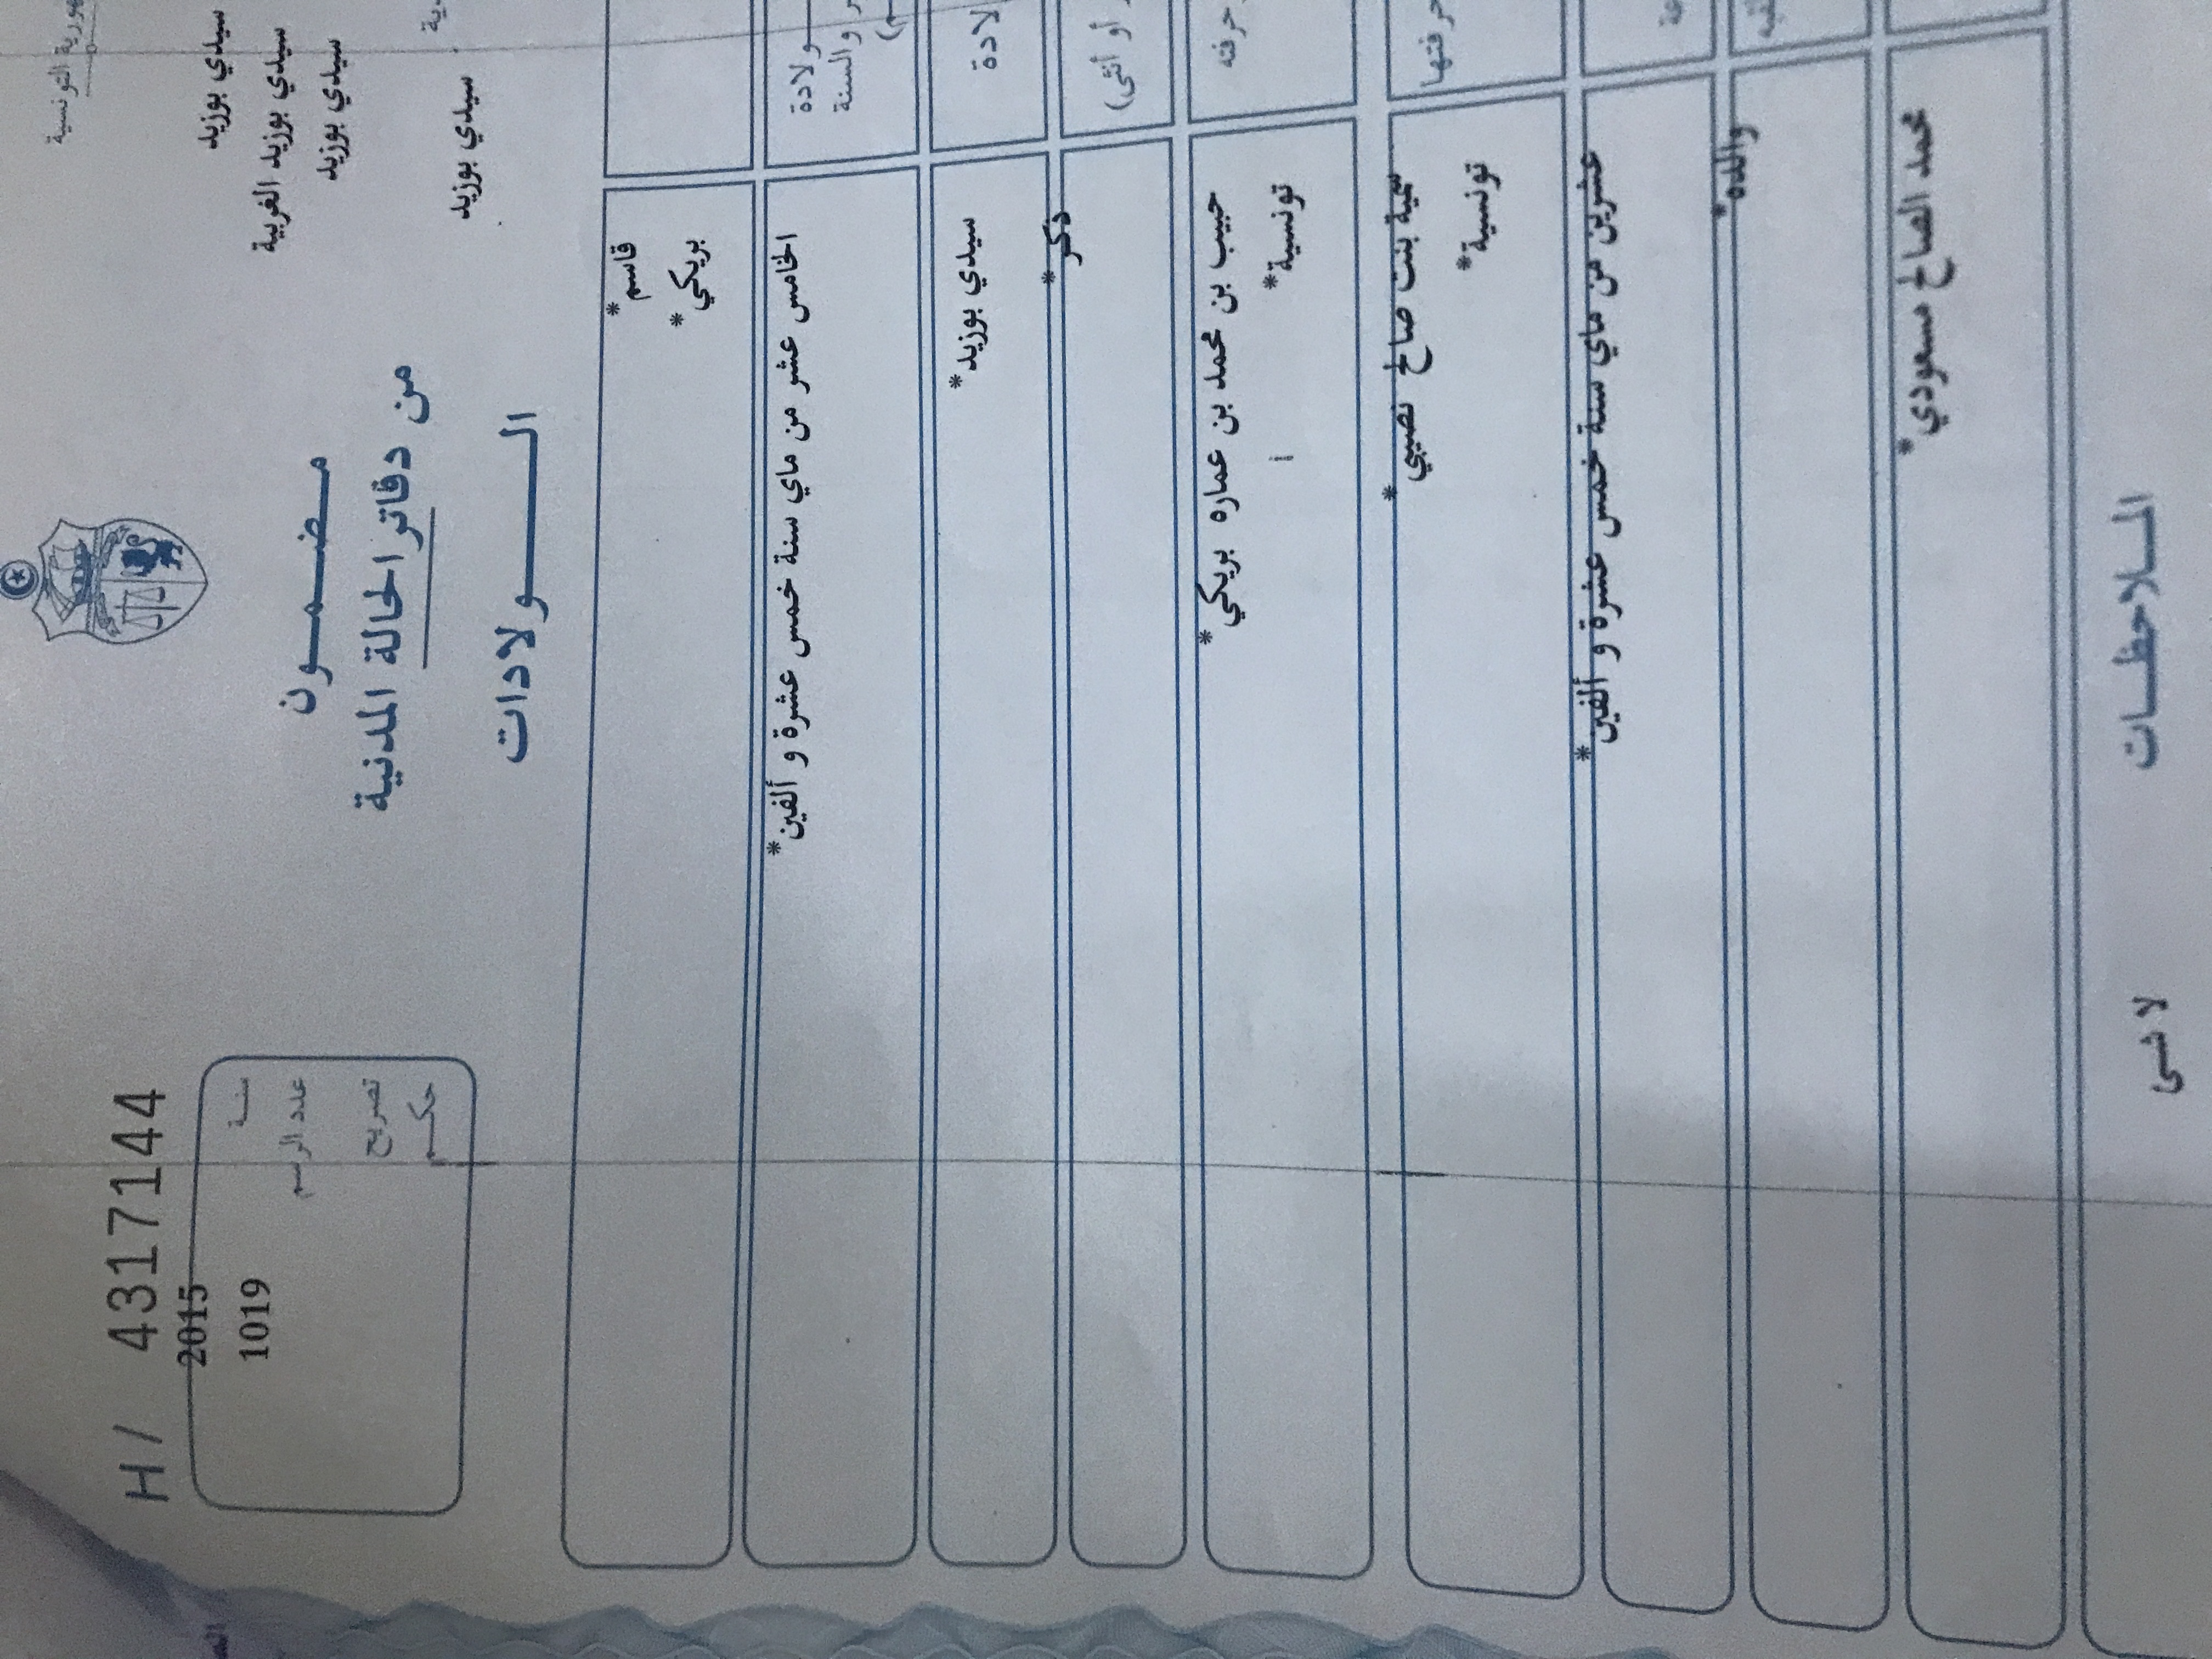 التونسية
سيدي بوزيد
سيدي بوزيد الغربية
سيدي بوزيد
سيدي بوزيد
مضمون
من دفاتر الحالة المدنية
الولادات
H/ 4317144
سنة 2015
عدد الرسم 1019
تصريح
حكم
قاسم*
بريكي*
ولادة
والسنة
الخامس عشر من ماي سنة خمس عشرة و ألفين*
سيدي بوزيد*
أو أنثى)
ذكر*
حرفته
حبيب بن محمد بن عماره بريكي*
تونسية*
حرفتها
سمية بنت صالح نصيبي*
تونسية*
عشرين من ماي سنة خمس عشرة و ألفين*
والده*
محمد الصالح مسعودي*
الملاحظات
لا شىء